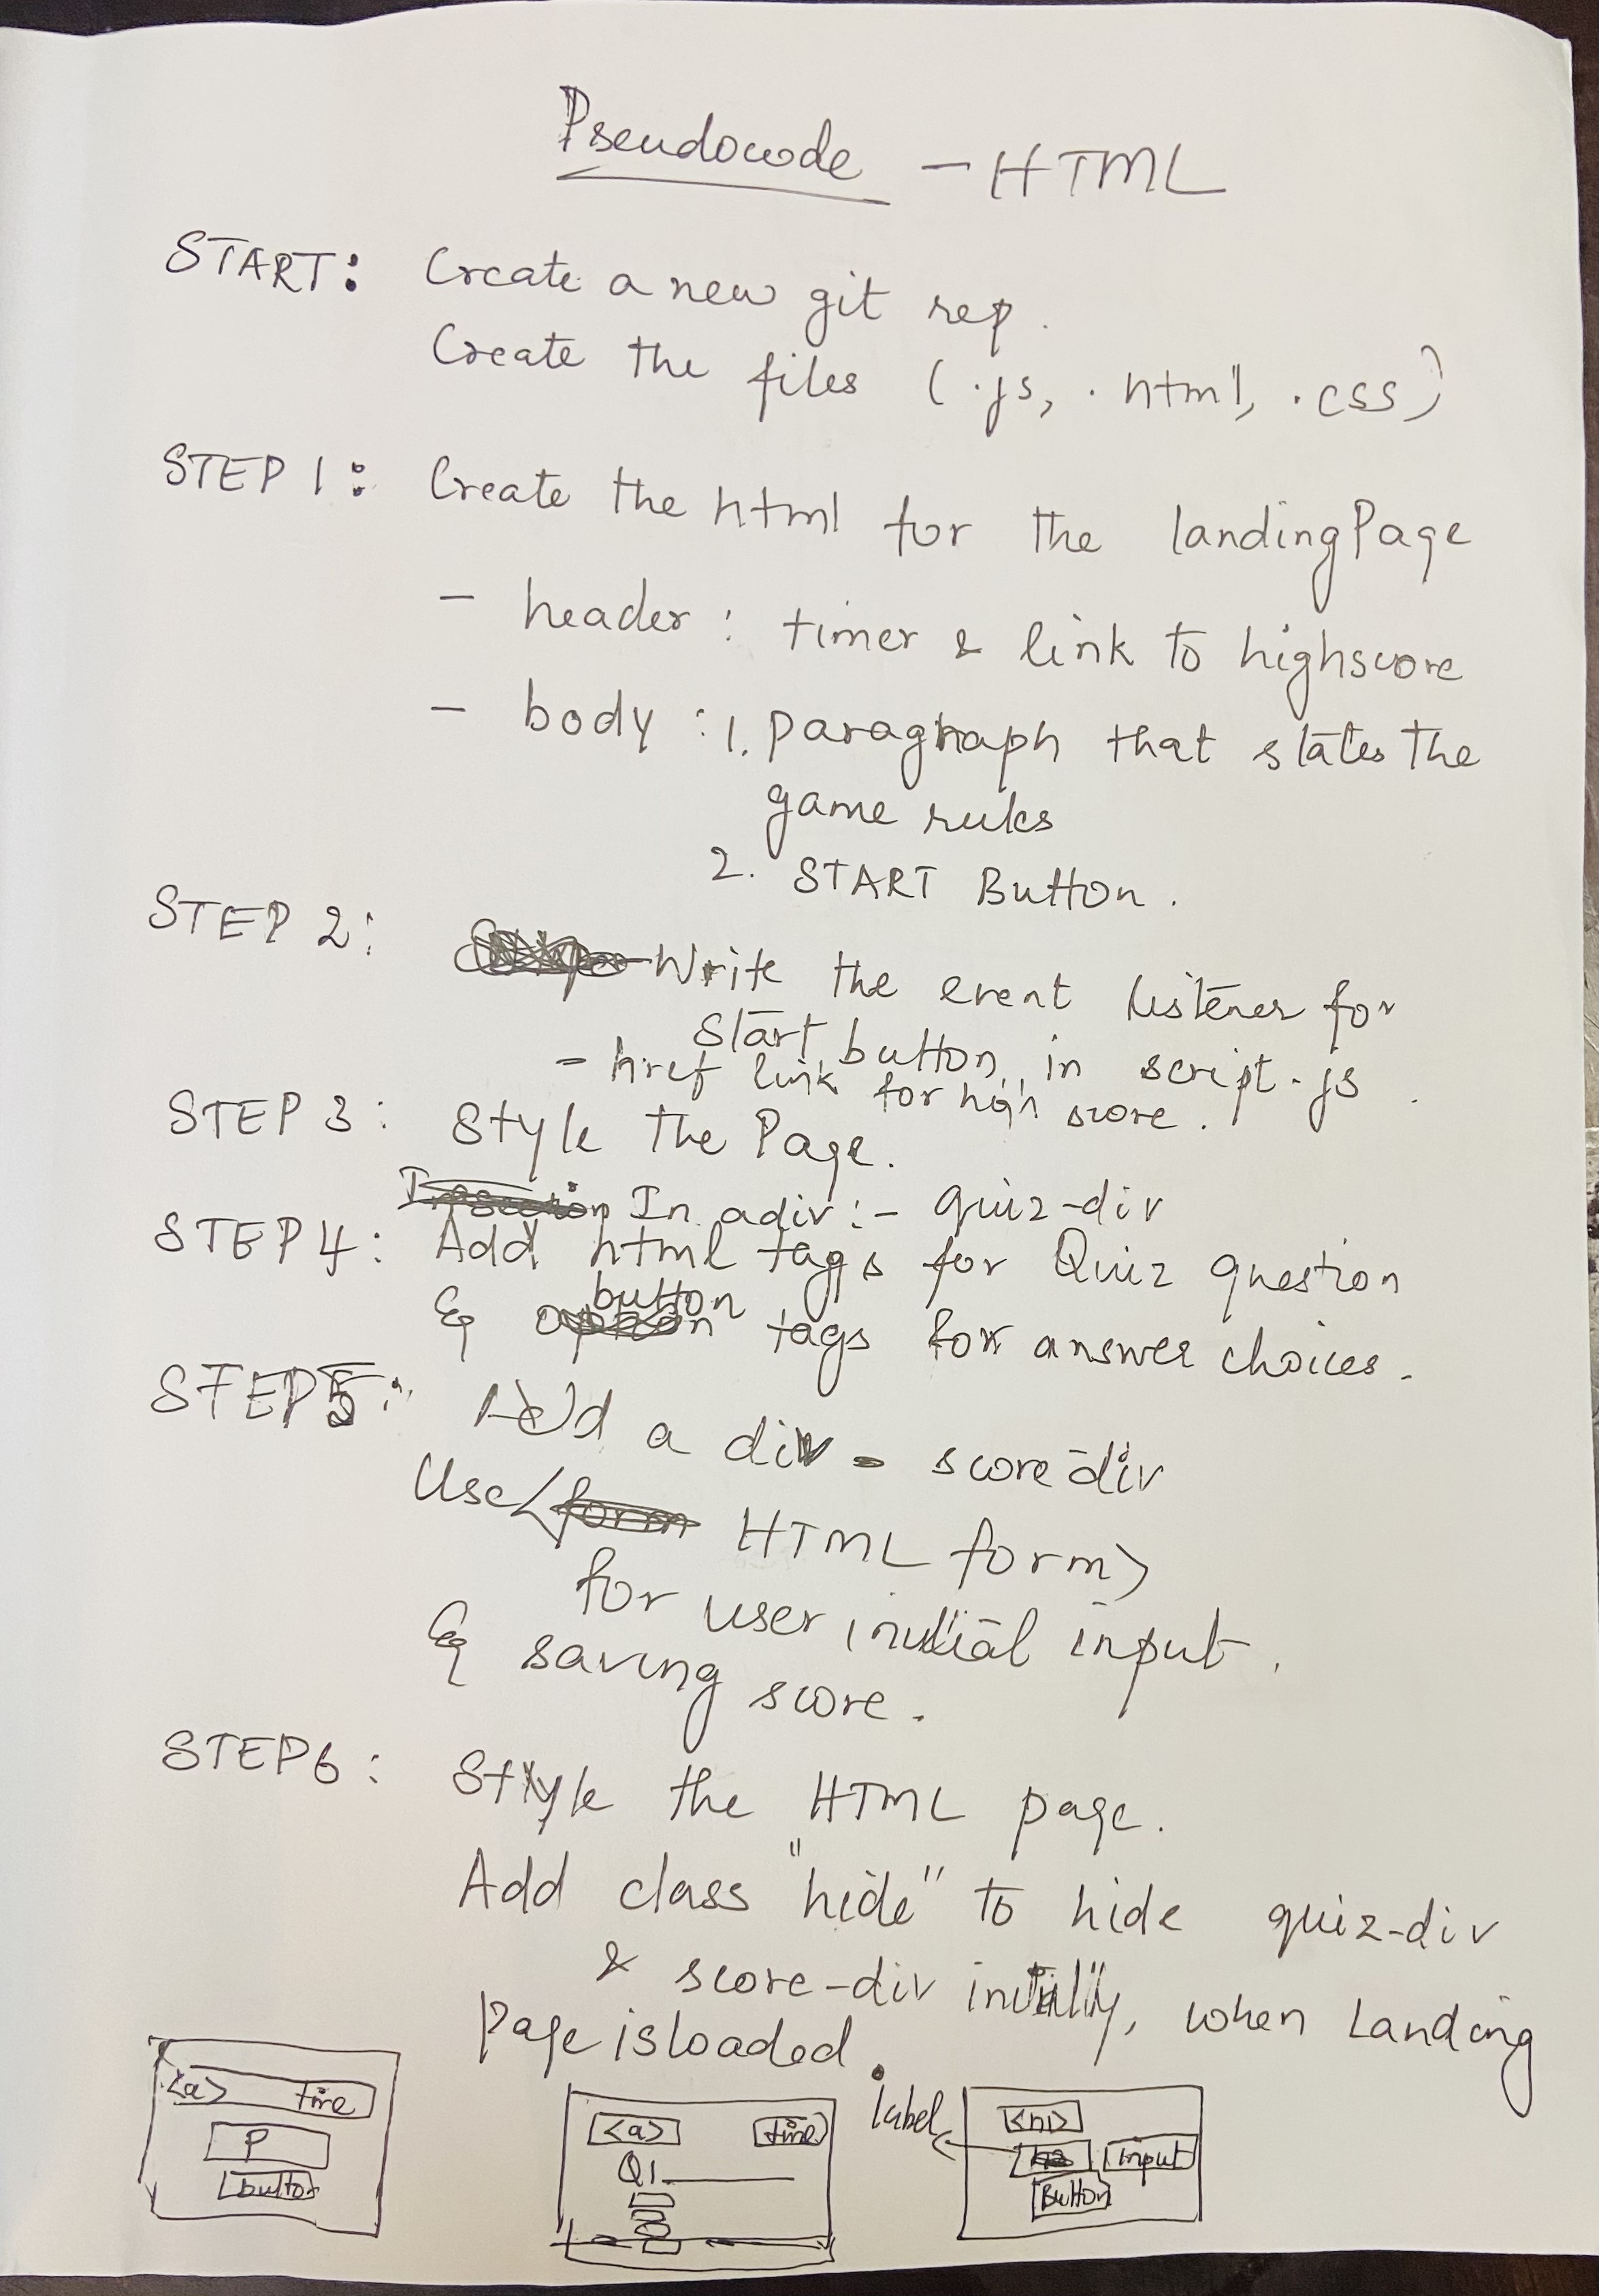 Pseudocode - HTML
START: Create a new git rep.
Create the files (.js, .html, .css)
STEP 1: Create the html for the landing Page
- header: timer & link to highscore
- body: 1. paragraph that states the
game rules
2. START Button.
STEP 2: Write the event listener for
start button in script.js.
- href link for high score.
STEP 3: Style the Page.
In a div:- quiz-div
STEP 4: Add html tags for Quiz question
& button tags for answer choices.
STEP 5: Add a div - score div
Use <HTML form>
for user initial input.
& saving score.
STEP 6: Style the HTML page.
Add class "hide" to hide quiz-div
& score-div initially, when Landing
Page is loaded.
<a> time
P
button
<a> time
Q1
label
<h1>
input
Button